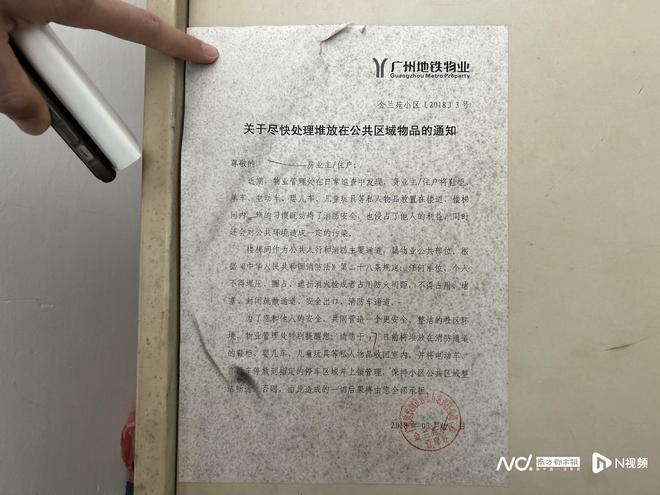 广州地铁物业
Guangzhou Metro Property
金兰苑小区〔2018〕3号
关于尽快处理堆放在公共区域物品的通知
尊敬的 房业主/住户：
近期，物业管理处在日常巡查中发现，贵业主/住户将鞋柜、
单车、电动车、婴儿车、儿童玩具等私人物品放置在楼道、楼梯
间内，您的习惯既妨碍了消防安全，也侵占了他人的利益，同时
还会对公共环境造成一定的污染。
楼梯间作为公共人行和消防主要通道，属物业公共部位，根
据《中华人民共和国消防法》第二十八条规定：任何单位、个人
不得埋压、圈占、遮挡消火栓或者占用防火间距，不得占用、堵
塞、封闭疏散通道、安全出口、消防车通道。
为了您和他人的安全，共同营造一个更安全、整洁的社区环
境，物业管理处特别提醒您：请您于 日前将堆放在消防通道
的鞋柜、婴儿车、儿童玩具等私人物品收回室内，并将电动车、
车停放到指定的停车区域并上锁管理，保持小区公共区域整
洁畅通。否则，由此造成的一切后果将由您全部承担。
2018 年 03 月 日
ND.
南方都市报
N视频